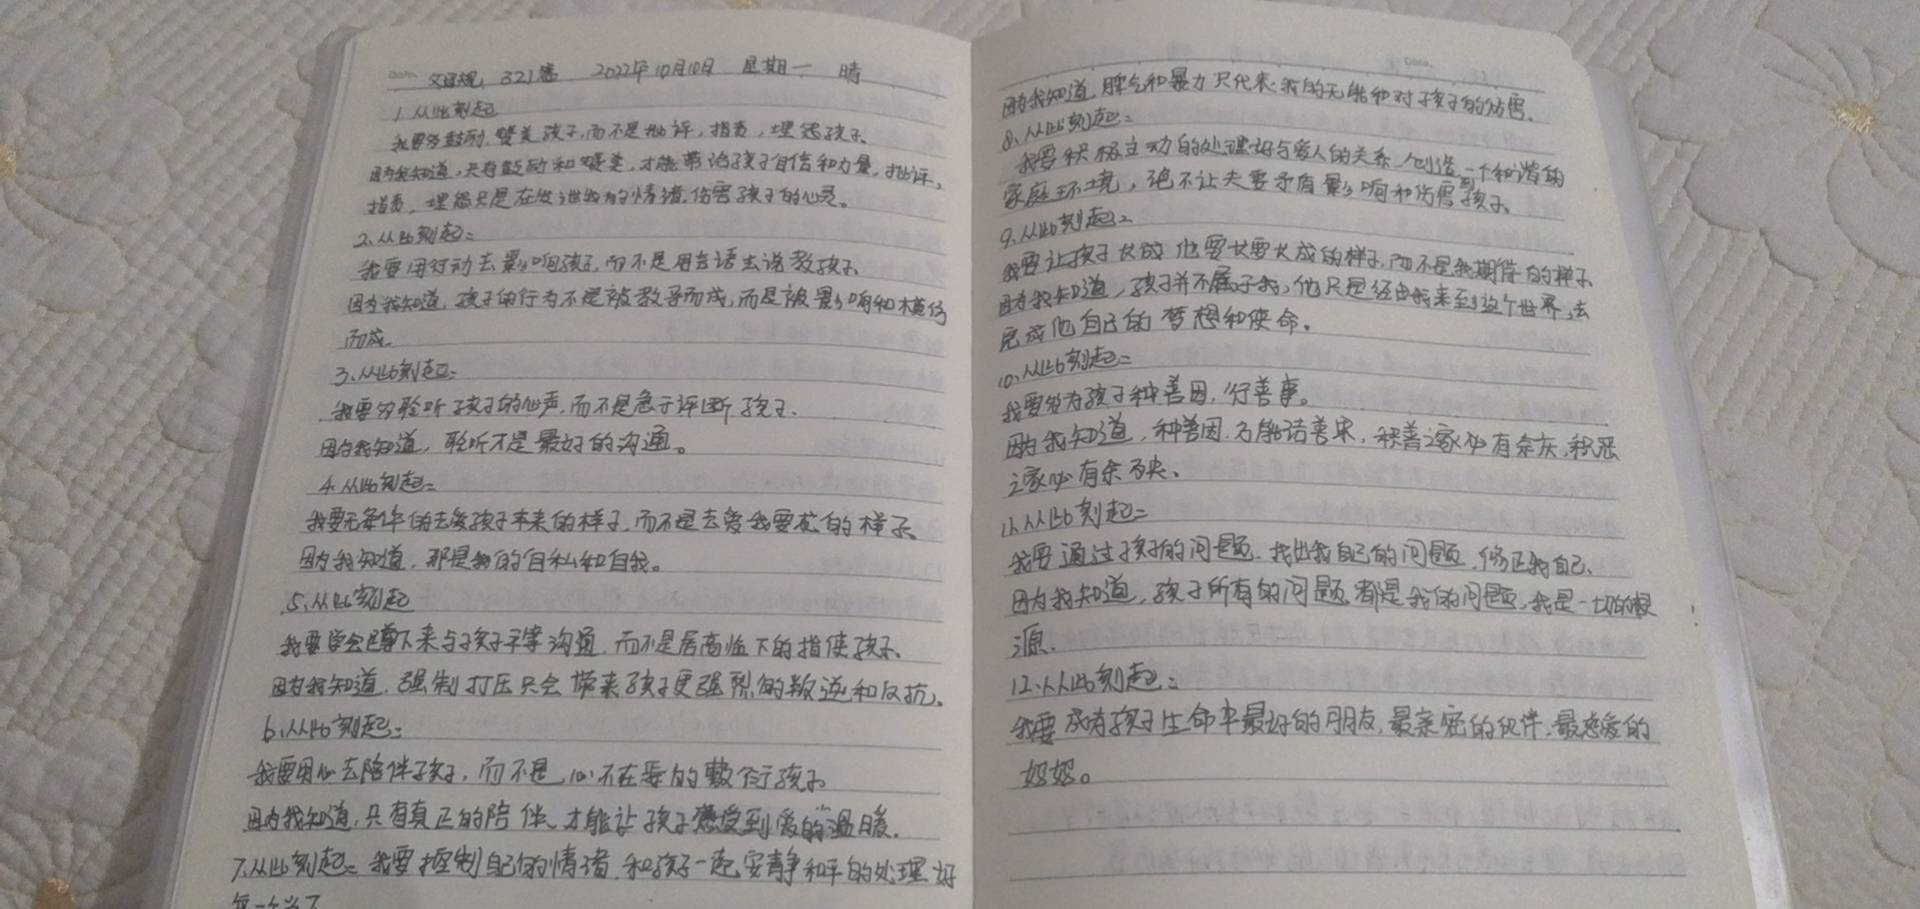 父母规 321遍 2022年10月10日 星期一 晴
1.从此刻起
我要多鼓励,赞美孩子,而不是批评,指责,埋怨孩子。
因为我知道,只有鼓励和赞美,才能带给孩子自信和力量,批评,
指责,埋怨只是在发泄我的情绪,伤害孩子的心灵。
2、从此刻起:
我要用行动去影响孩子,而不是用言语去说教孩子。
因为我知道,孩子的行为不是被教导而成,而是被影响和模仿
而成。
3、从此刻起:
我要多聆听孩子的心声,而不是急于评断孩子、
因为我知道,聆听才是最好的沟通。
4、从此刻起:
我要无条件的去爱孩子本来的样子,而不是去爱我要求的样子。
因为我知道,那是我的自私和自我。
5、从此刻起
我要学会蹲下来与孩子平等沟通,而不是居高临下的指使孩子、
因为我知道,强制打压只会带来孩子更强烈的叛逆和反抗。
6、从此刻起:
我要用心去陪伴孩子,而不是心不在焉的敷衍孩子。
因为我知道,只有真正的陪伴、才能让孩子感受到爱的温暖。
7、从此刻起:我要控制自己的情绪,和孩子一起,安静和平的处理好
每一个当下
因为我知道,脾气和暴力只代表:我的无能和对孩子的伤害。
8、从此刻起:
我要积极主动的处理好与爱人的关系,创造一个和谐的
家庭环境,绝不让夫妻矛盾影响和伤害到孩子。
9、从此刻起:
我要让孩子长成他要长要长成的样子,而不是我期待的样子
因为我知道,孩子并不属于我,他只是经由我来到这个世界,去
完成他自己的梦想和使命。
10、从此刻起:
我要多为孩子种善因,行善事。
因为我知道,种善因,方能结善果,积善之家必有余庆,积恶
之家必有余殃、
11、从此刻起:
我要通过孩子的问题,找出我自己的问题,修正我自己、
因为我知道,孩子所有的问题,都是我的问题,我是一切的根
源.
12、从此刻起:
我要成为孩子生命中最好的朋友,最亲密的伙伴,最慈爱的
妈妈。